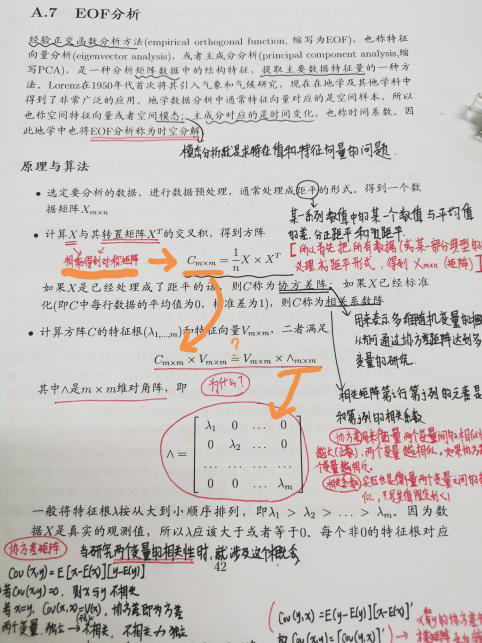 A.7 EOF分析
经验正交函数分析方法(empirical orthogonal function, 缩写为EOF)，也称特征
向量分析(eigenvector analysis)，或者主成分分析(principal component analysis,缩
写PCA)，是一种分析矩阵数据中的结构特征，提取主要数据特征量的一种方
法。Lorenz在1950年代首次将其引入气象和气候研究，现在在地学及其他学科中
得到了非常广泛的应用。地学数据分析中通常特征向量对应的是空间样本，所以
也称空间特征向量或者空间模态；主成分对应的是时间变化，也称时间系数。因
此地学中也将EOF分析称为时空分解。
模态分析就是求特征值和特征向量的问题.
原理与算法
• 选定要分析的数据，进行数据预处理，通常处理成距平的形式。得到一个数
据矩阵Xm×n
某一系列数值中的某一个数值与平均值
的差,分正距平和负距平.
• 计算X与其转置矩阵X^T的交叉积，得到方阵
[所以首先把所有数据
处理为距平形式，得到 Xm×n (矩阵)]
相乘得到对称矩阵
C_{m×m} = 1/n X × X^T
如果X是已经处理成了距平的话，则C称为协方差阵；如果X已经标准
化(即C中每行数据的平均值为0，标准差为1)，则C称为相关系数阵
用来表示多维随机变量的
从而可通过协方差矩阵达到多
变量的研究.
• 计算方阵C的特征根(λ1,...,m)和特征向量Vm×m，二者满足
?
C_{m×m} × V_{m×m} = V_{m×m} × ∧_{m×m}
其中∧是m × m维对角阵，即
为什么?
相关矩阵第i行第j列的元素是
和第j列的相关系数
∧ = [ λ1 0 … 0
0 λ2 … 0
… … … …
0 0 … λm ]
协方差用来衡量两个变量间的相似
越大(正数)，两个变量越相似，如果协方
变量越相反.
相关系数:实际也是衡量两个变量之间的
一般将特征根λ按从大到小顺序排列，即λ1 > λ2 > … > λm。因为数
据X是真实的观测值，所以λ应该大于或者等于0。每个非0的特征根对应
协方差矩阵
当研究两个变量的相关性时,就涉及这个概念
42
Cov(x,y)=E[x-E(x)][y-E(y)]
若Cov(x,y)=0，则x与y不相关
若x=y, Cov(x,x)=V(x)，协方差即为方差
两个变量 独立→不相关，不相关 独立
Cov(y,x)=E(y-E(y))[x-E(x)]'
Cov(y,x)=[Cov(x,y)]'